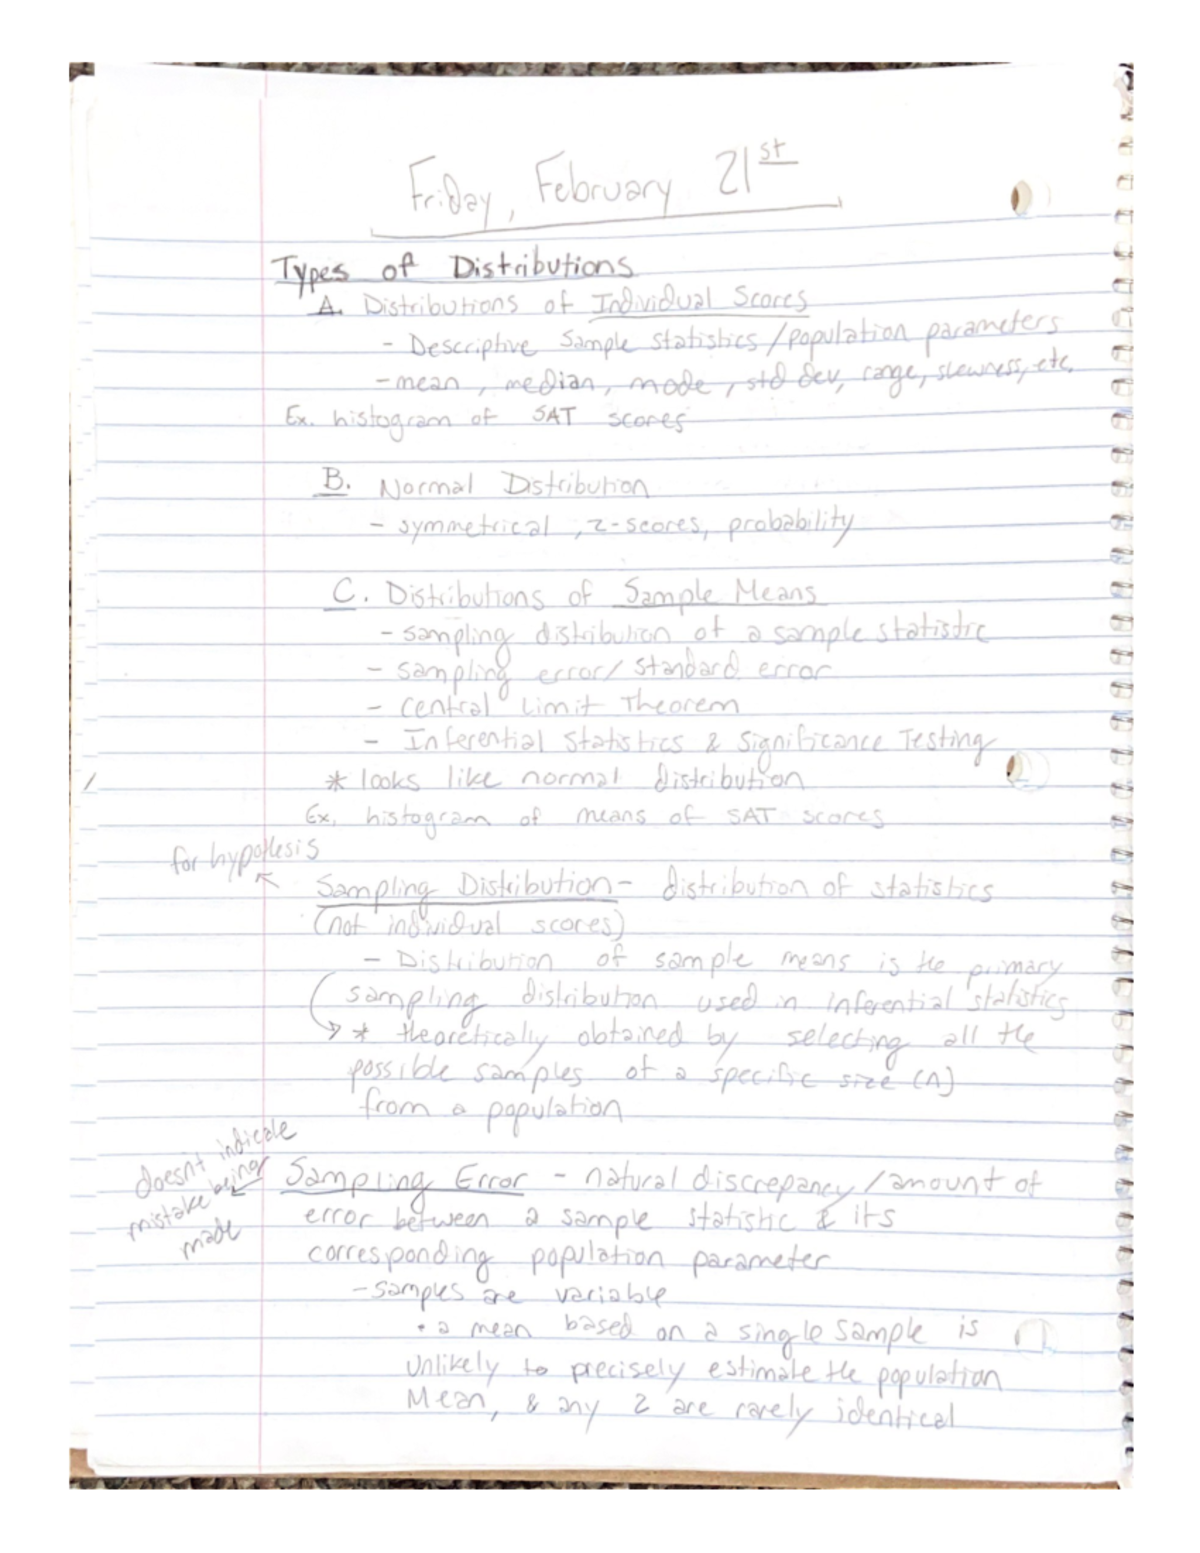 Friday, February 21st
Types of Distributions
A. Distributions of Individual Scores
- Descriptive Sample Statistics / population parameters
- mean, median, mode, std dev, range, skewness, etc.
Ex. histogram of SAT scores
B. Normal Distribution
- symmetrical, z-scores, probability
C. Distributions of Sample Means
- sampling distribution of a sample statistic
- sampling error/ standard error
- Central Limit Theorem
- Inferential Statistics & Significance Testing
* looks like normal distribution
Ex. histogram of means of SAT scores
for hypothesis
Sampling Distribution - distribution of statistics
(not individual scores)
- Distribution of sample means is the primary
sampling distribution used in inferential statistics
* theoretically obtained by selecting all the
possible samples of a specific size (n)
from a population
doesn't indicate
mistake being
made
Sampling Error - natural discrepancy / amount of
error between a sample statistic & its
corresponding population parameter
- samples are variable
• a mean based on a single sample is
unlikely to precisely estimate the population
Mean, & any 2 are rarely identical